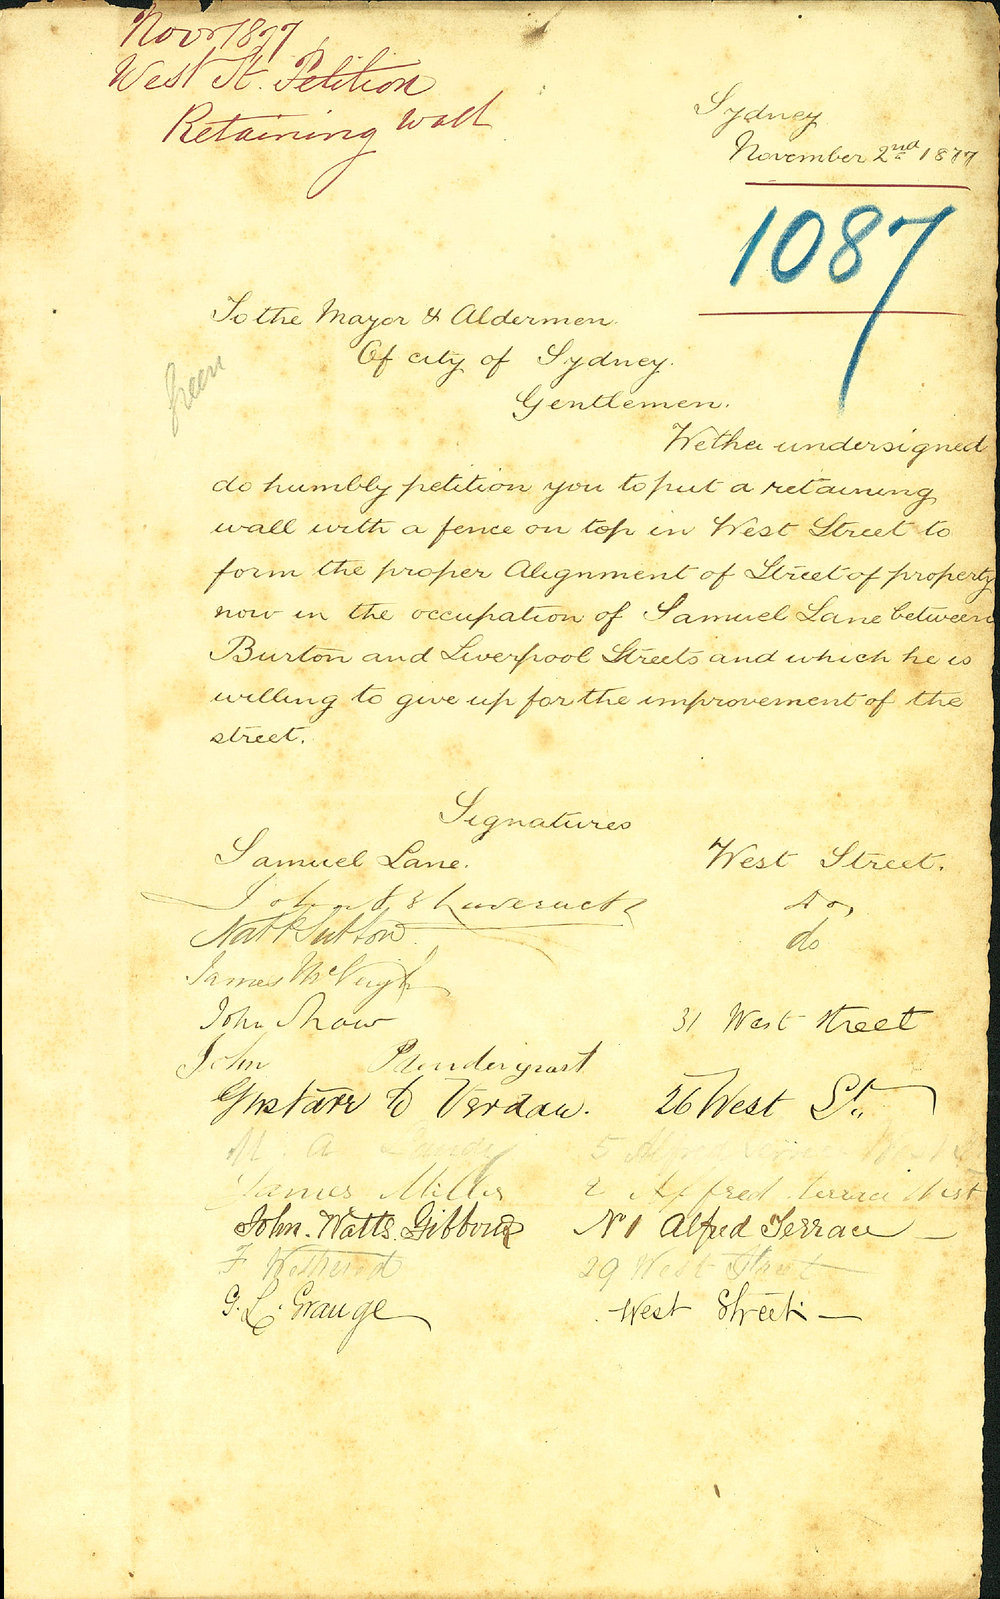 Novr 1877
West St. Petition
Retaining Wall
Sydney
November 2nd 1877
1087
To the Mayor & Aldermen
Of city of Sydney.
Gentlemen.
We the undersigned
do humbly petition you to put a retaining
wall with a fence on top in West Street to
form the proper Alignment of Street of property
now in the occupation of Samuel Lane between
Burton and Liverpool Streets and which he is
willing to give up for the improvement of the
street.
Signatures
Samuel Lane. West Street.
John do,
Natl Sutton do
James McVeigh
John Shaw 31 West Street
John Pendergrast
Gustave Verdau. 26 West St.
M. A. 5 Alfred Terrace West
James Miller 2 Alfred terrace West
John. Watts. Gibbons No 1 Alfred Terrace —
F 29 West Street —
G. L. Grange West Street. —